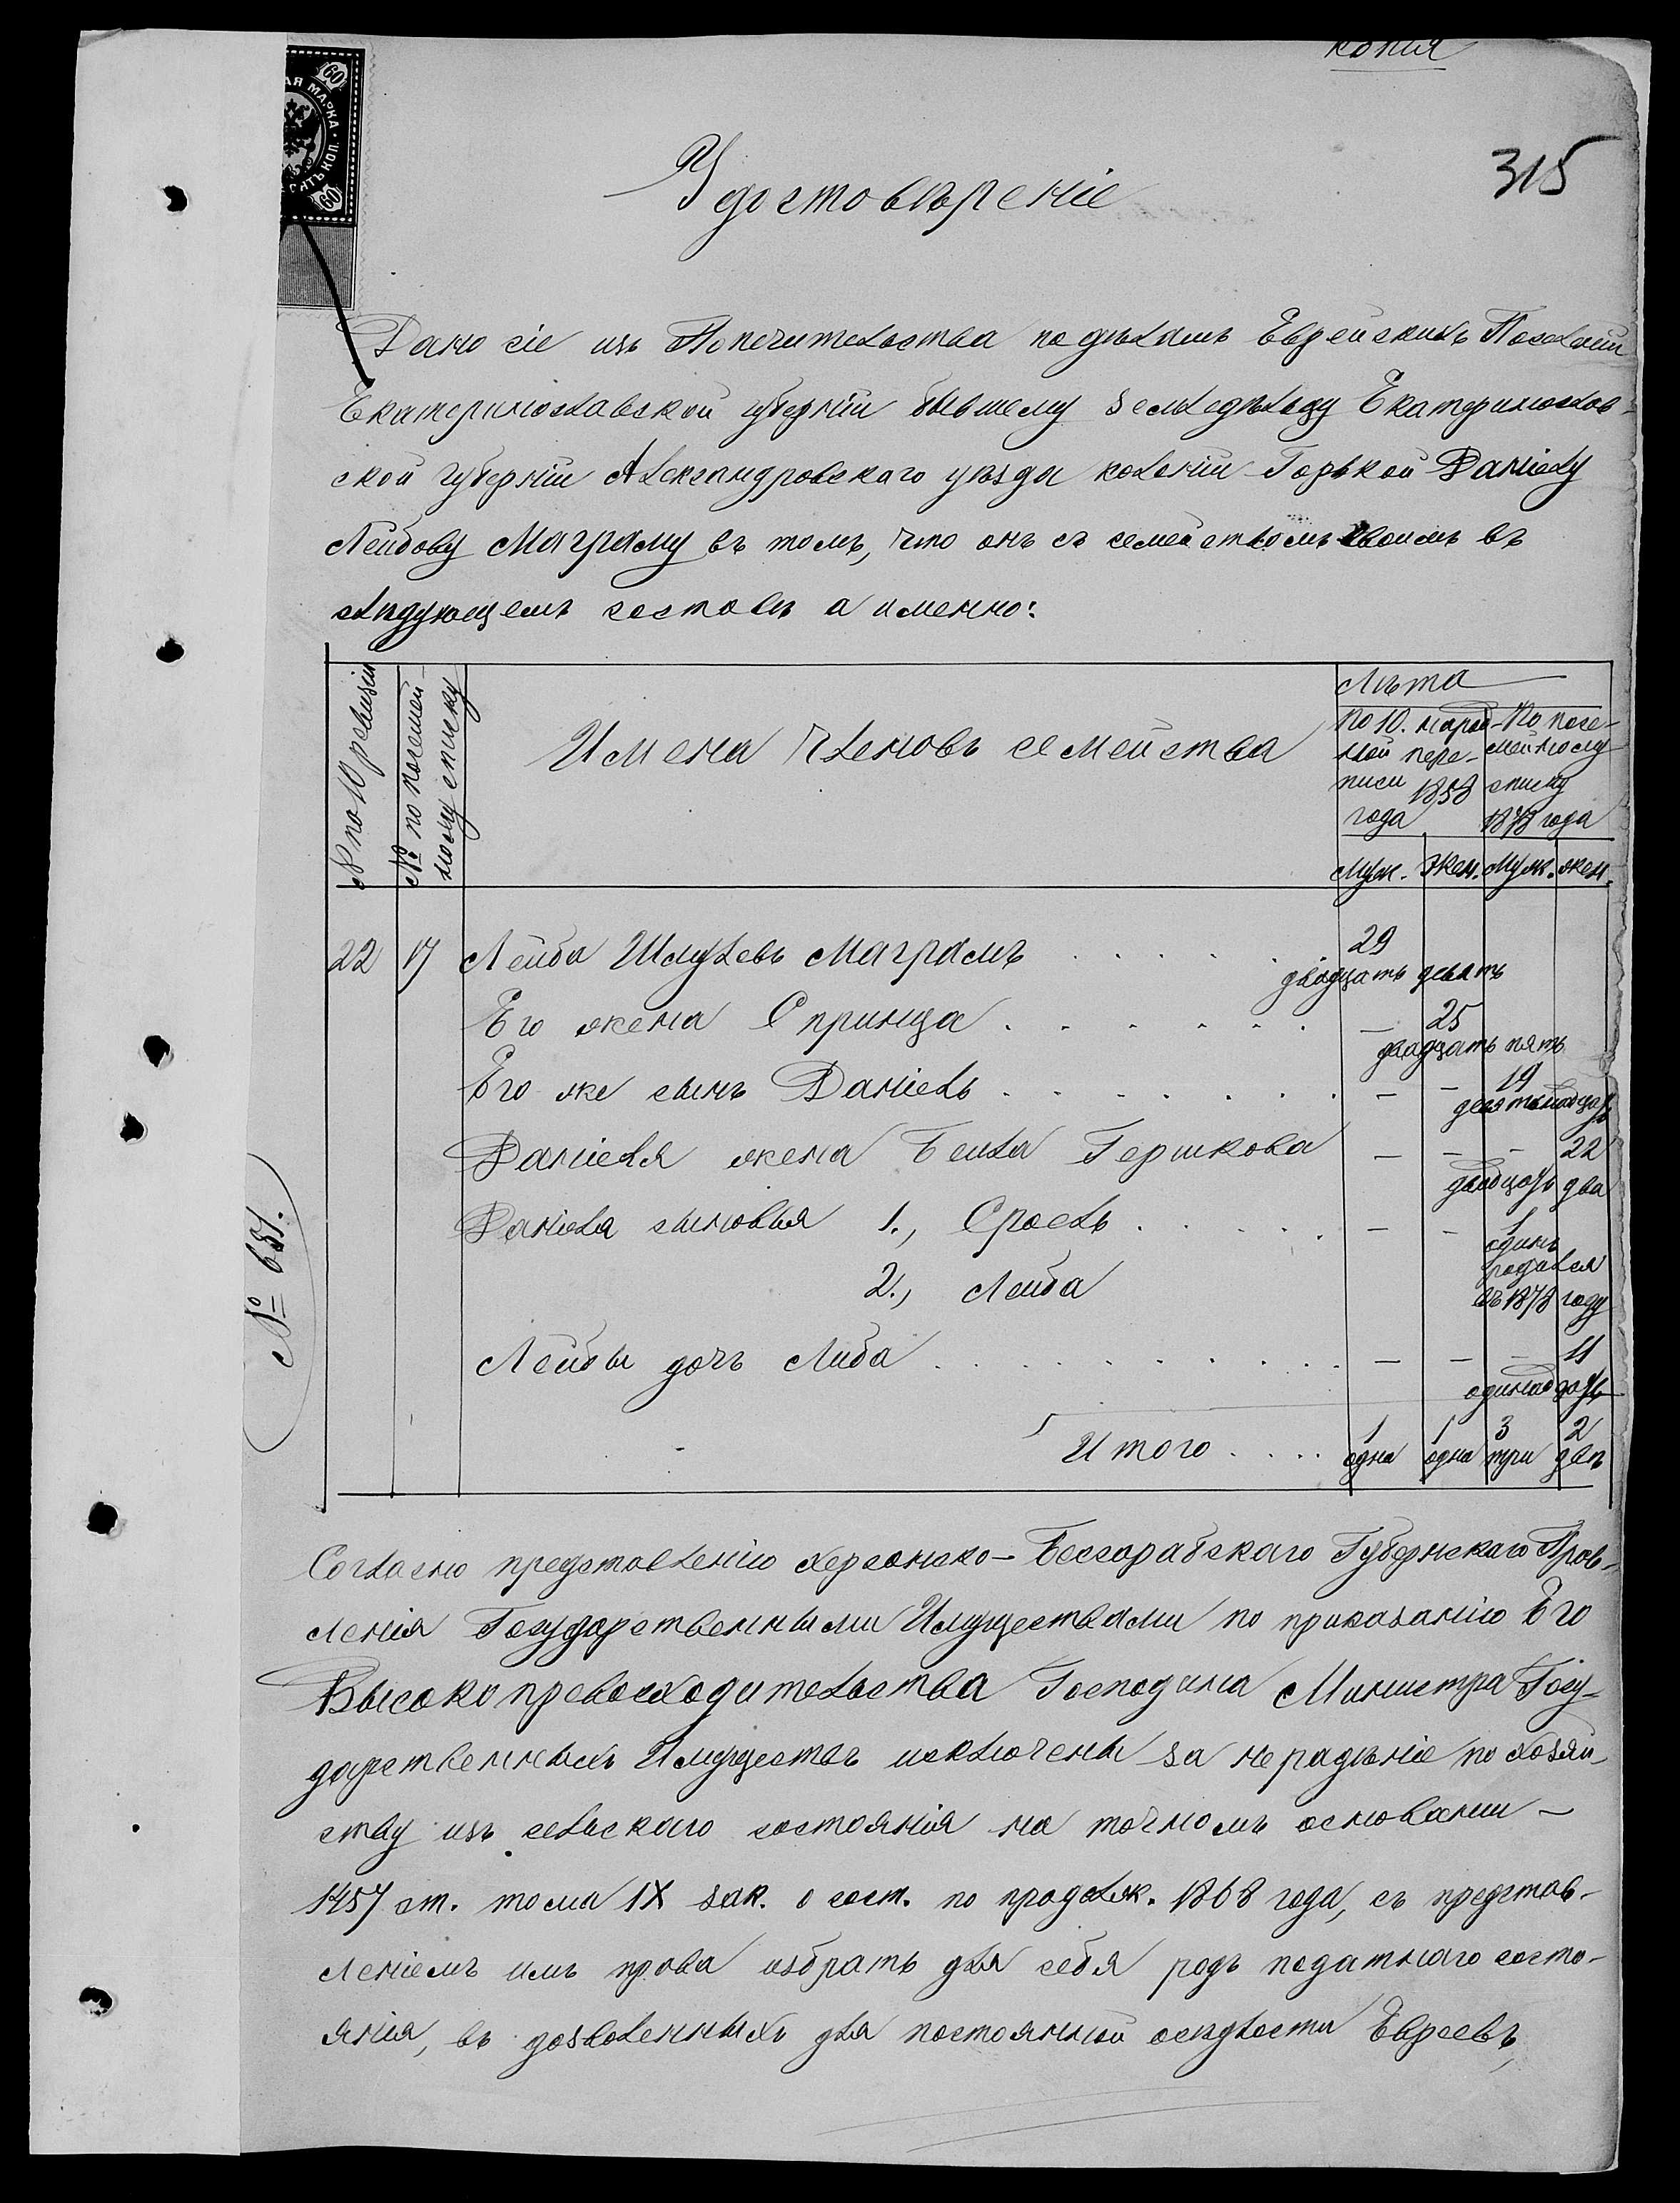 копія
315
Удостовѣреніе
60
АЯ МАРКА
КОП.
60
Дано сіе изъ Попечительства по дѣламъ Еврейскихъ Поселеній
Екатеринославской губерніи бывшему земледѣльцу Екатеринослав-
ской губерніи Александровскаго уѣзда колоніи Горькой Даніелу
Лейбову Маграму въ томъ, что онъ съ семействомъ своимъ въ
слѣдующемъ составѣ а именно:
№ по 10 ревизіи
№ по посемей-
ному списку
Имена членовъ семейства
Лѣта
По 10. народ-
ной пере-
писи 1858
года
По посе-
мейному
списку
1878 года
Муж. Жен. Муж. жен.
22 17 Лейба Шмулевъ Маграмъ . . . . . . 29
двадцать девять
Его жена Спринца . . . . . . . — 25
двадцать пять
Его же сынъ Даніель . . . . . . . — — 19
девятнадцать
Даніеля жена Бейла Гершкова — — — 22
двадцать два
Даніеля сыновья 1., Сроель . . . . . — — 1
одинъ
2., Лейба родился
въ 1878 году
Лейбы дочь Либа . . . . . . . . . . . — — — 11
одинадцать
Итого . . . . 1 1 3 2
одна одна три двѣ
№ 651.
Согласно представленію Херсонско-Бессарабскаго Губернскаго Прав-
ленія Государственными Имуществами по приказанію Его
Высокопревосходительства Господина Министра Госу-
дарственныхъ Имуществъ исключены за нерадѣніе по хозяй-
ству изъ сельскаго состоянія на точномъ основаніи —
1457 ст. тома IX зак. о сост. по продолж. 1868 года, съ представ-
леніемъ имъ права избрать для себя родъ податнаго состо-
янія, въ дозволенныхъ для постоянной осѣдлости Евреевъ,